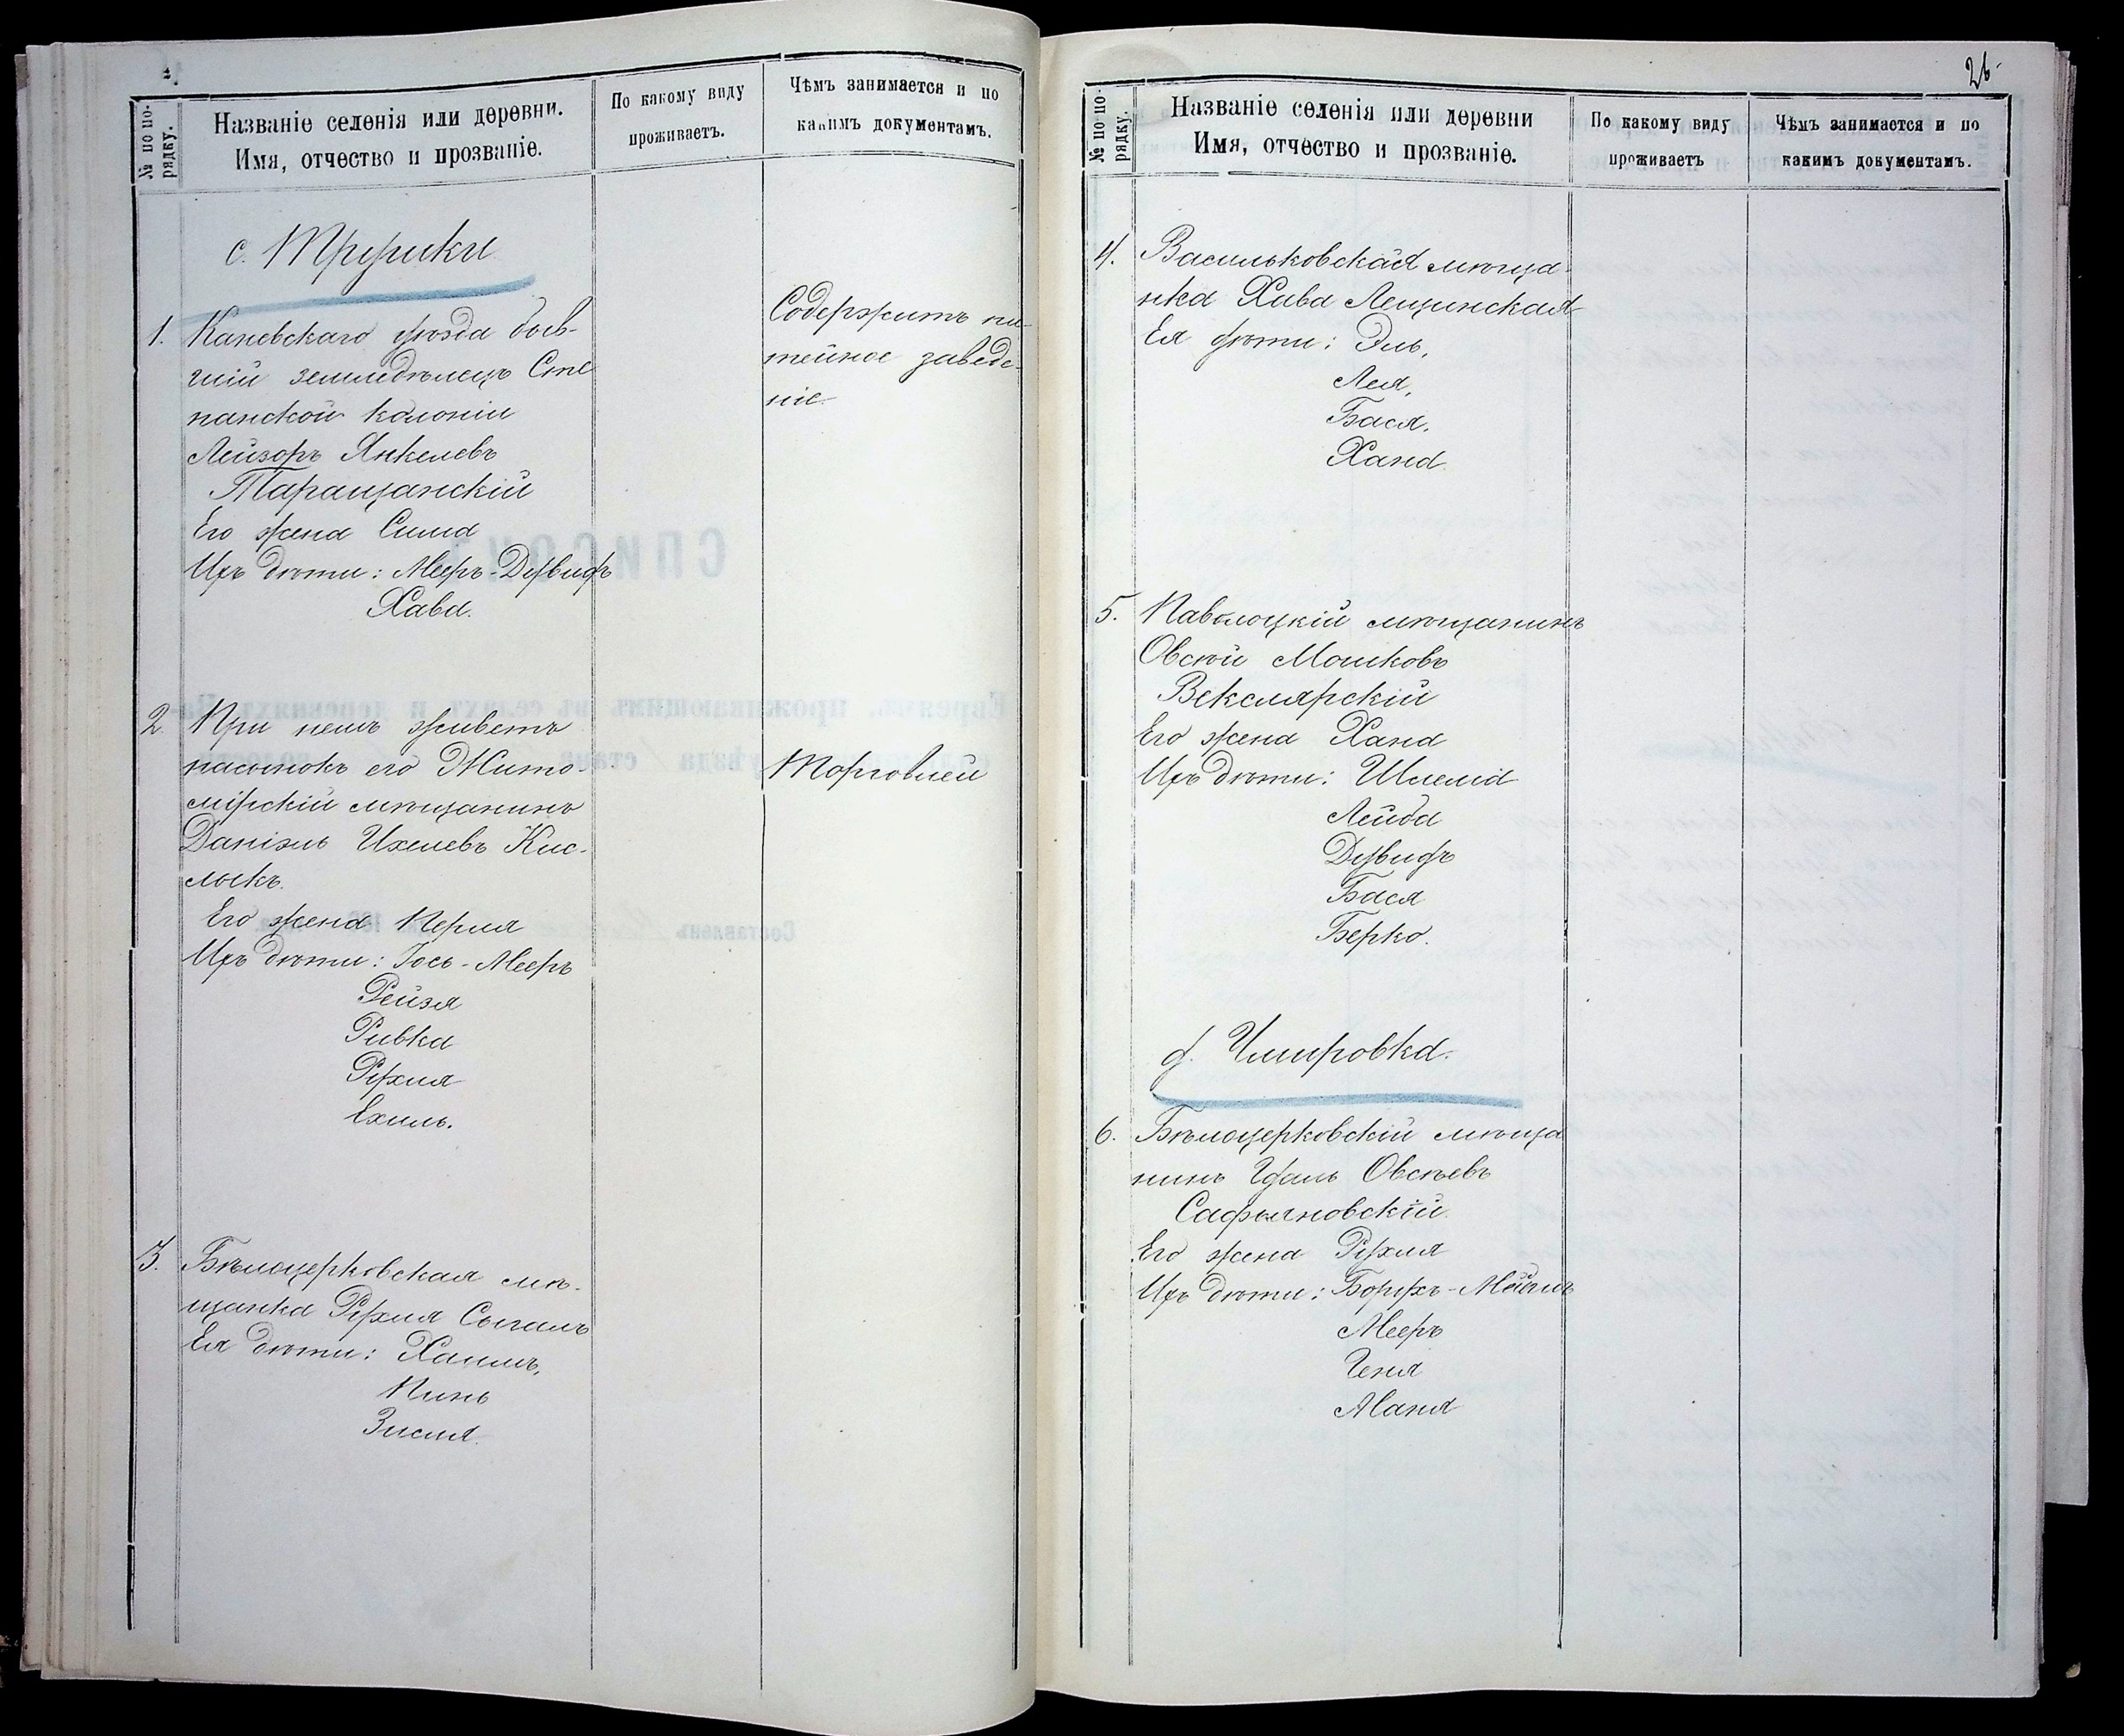 № по по-
рядку.
Названіе селенія или деревни.
Имя, отчество и прозваніе.
По какому виду
проживаетъ.
Чѣмъ занимается и по
какимъ документамъ.
с. Трушки
1. Каневскаго уѣзда быв-
шій земледѣлецъ Сте
панской колоніи
Лейзоръ Янкелевъ
Таращанскій
Его жена Сима
Ихъ дѣти: Мееръ-Дувидъ
Хава.
Содержитъ пи-
тейное заведе-
ніе
2 При немъ живетъ
пасынокъ его Жито-
мірскій мѣщанинъ
Даніэль Ихелевъ Кис-
лыкъ.
Его жена Перля
Ихъ дѣти: Іось-Мееръ
Рейзя
Ривка
Рухля
Ехиль.
Торговлей
3. Бѣлоцерковская мѣ-
щанка Рухля Сыгалъ
Ея дѣти: Хаимъ,
Пинь
Зисля
26
№ по по-
рядку.
Названіе селенія или деревни
Имя, отчество и прозваніе.
По какому виду
проживаетъ
Чѣмъ занимается и по
какимъ документамъ.
4. Васильковская мѣща-
нка Хава Лещинская
Ея дѣти: Эль,
Лея,
Бася,
Хана
5. Паволоцкій мѣщанинъ
Овсѣй Мошковъ
Векслярскій
Его жена Хана
Ихъ дѣти: Шлема
Лейба
Дувидъ
Бася
Берко.
д. Чмировка.
6. Бѣлоцерковскій мѣща
нинъ Удаль Овсѣевъ
Сафьяновскій
Его жена Рухля
Ихъ дѣти: Борухъ-
Мееръ
Геня
Маня